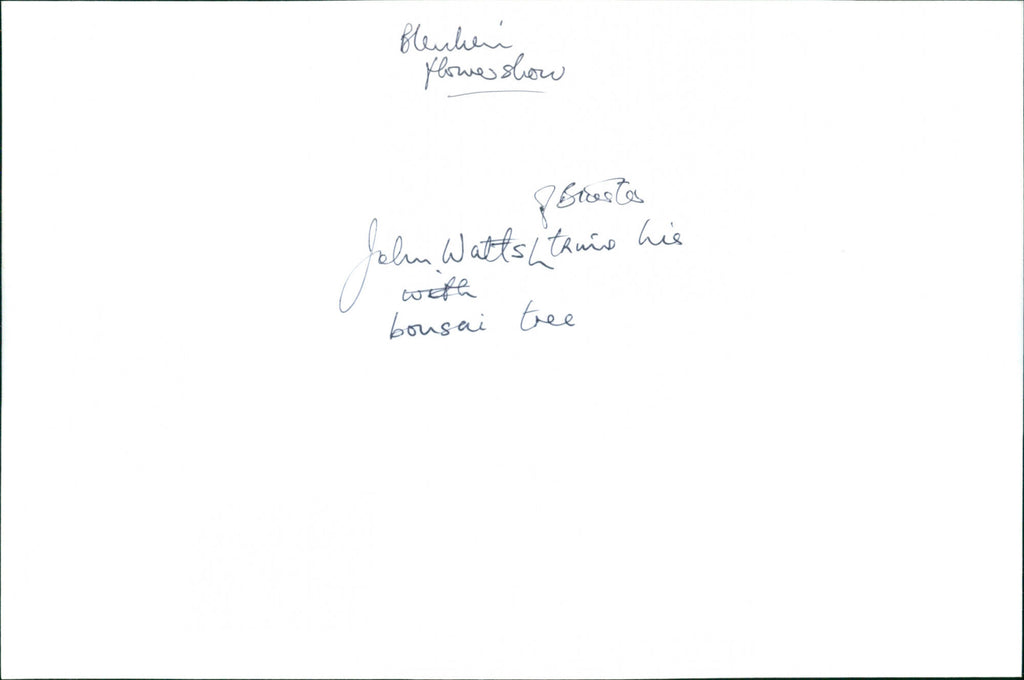 Blenheim
flowershow
of Bicester
John Watts trims his
with
bonsai tree